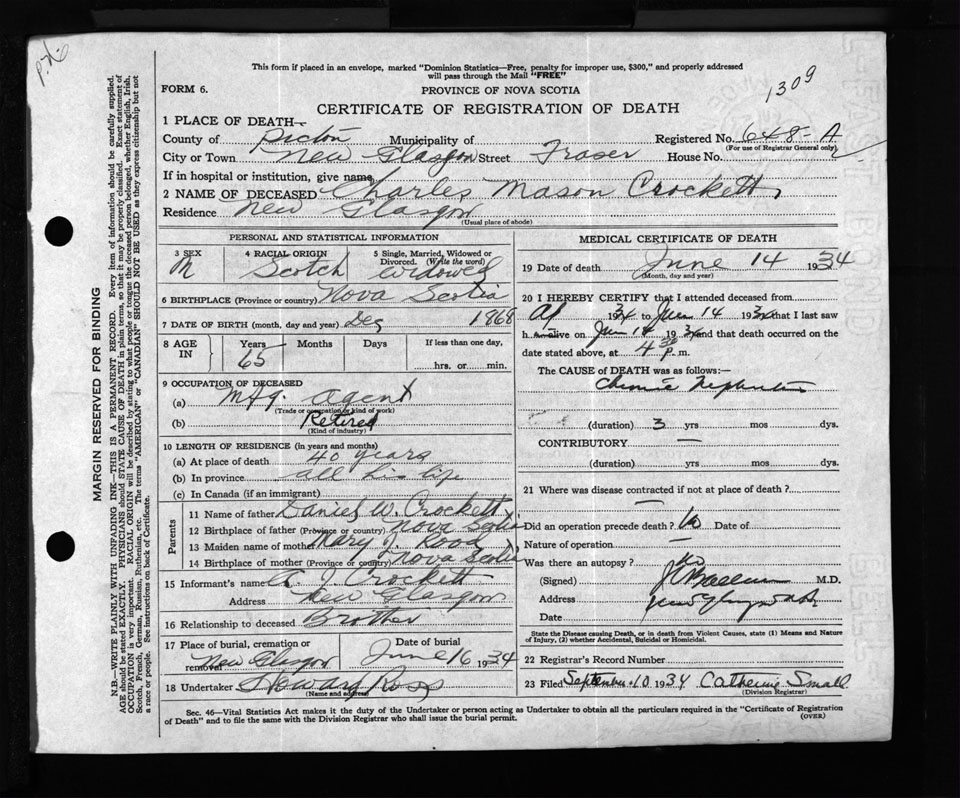 This form if placed in an envelope, marked "Dominion Statistics—Free, penalty for improper use, $300," and properly addressed
will pass through the Mail "FREE"
1309
FORM 6.
PROVINCE OF NOVA SCOTIA
CERTIFICATE OF REGISTRATION OF DEATH
1 PLACE OF DEATH—
County of Pictou Municipality of Registered No. 648-A
(For use of Registrar General only)
City or Town New Glasgow Street Fraser House No.
If in hospital or institution, give name
2 NAME OF DECEASED Charles Mason Crockett
Residence New Glasgow
(Usual place of abode)
PERSONAL AND STATISTICAL INFORMATION
3 SEX M
4 RACIAL ORIGIN Scotch
5 Single, Married, Widowed or Divorced. (Write the word) Widowed
6 BIRTHPLACE (Province or country) Nova Scotia
7 DATE OF BIRTH (month, day and year) Dec 1868
8 AGE IN Years 65 Months Days If less than one day, hrs. or min.
9 OCCUPATION OF DECEASED
(a) Mfg. Agent
(Trade or occupation or kind of work)
(b) Retired
(Kind of industry)
10 LENGTH OF RESIDENCE (in years and months)
(a) At place of death 40 years
(b) In province all his life
(c) In Canada (if an immigrant)
Parents
11 Name of father Daniel W. Crockett
12 Birthplace of father (Province or country) Nova Scotia
13 Maiden name of mother Mary J. Rood
14 Birthplace of mother (Province or country) Nova Scotia
15 Informant's name A. J. Crockett
Address New Glasgow
16 Relationship to deceased Brother
17 Place of burial, cremation or removal New Glasgow
Date of burial June 16 1934
18 Undertaker Howard Ross
(Name and address)
MEDICAL CERTIFICATE OF DEATH
19 Date of death June 14 1934
(Month, day and year)
20 I HEREBY CERTIFY that I attended deceased from
Ap 1934 to Jun 14 1934 that I last saw
h alive on Jun 14 1934 and that death occurred on the
date stated above, at 4 30 p.m.
The CAUSE OF DEATH was as follows:—
Chronic Nephritis
(duration) 3 yrs mos dys.
CONTRIBUTORY —
(duration) yrs mos dys.
21 Where was disease contracted if not at place of death?
—
Did an operation precede death? No Date of
Nature of operation —
Was there an autopsy? No
(Signed) M.D.
Address New Glasgow N.S.
Date
State the Disease causing Death, or in death from Violent Causes, state (1) Means and Nature
of Injury, (2) whether Accidental, Suicidal or Homicidal.
22 Registrar's Record Number
23 Filed September 10 1934 Catherine Small
(Division Registrar)
Sec. 46—Vital Statistics Act makes it the duty of the Undertaker or person acting as Undertaker to obtain all the particulars required in the "Certificate of Registration
of Death" and to file the same with the Division Registrar who shall issue the burial permit.
(OVER)
MARGIN RESERVED FOR BINDING
N.B.—WRITE PLAINLY WITH UNFADING INK—THIS IS A PERMANENT RECORD. Every item of information should be carefully supplied.
AGE should be stated EXACTLY. PHYSICIANS should STATE CAUSE OF DEATH in plain terms, so that it may be properly classified. Exact statement of
OCCUPATION is very important. RACIAL ORIGIN will be described by stating to what people or tongue the deceased person belonged, whether English, Irish,
Scotch, French, German, Russian, Ruthenian, etc. The terms "AMERICAN" or "CANADIAN" SHOULD NOT BE USED as they express citizenship but not
a race or people. See instructions on back of Certificate.